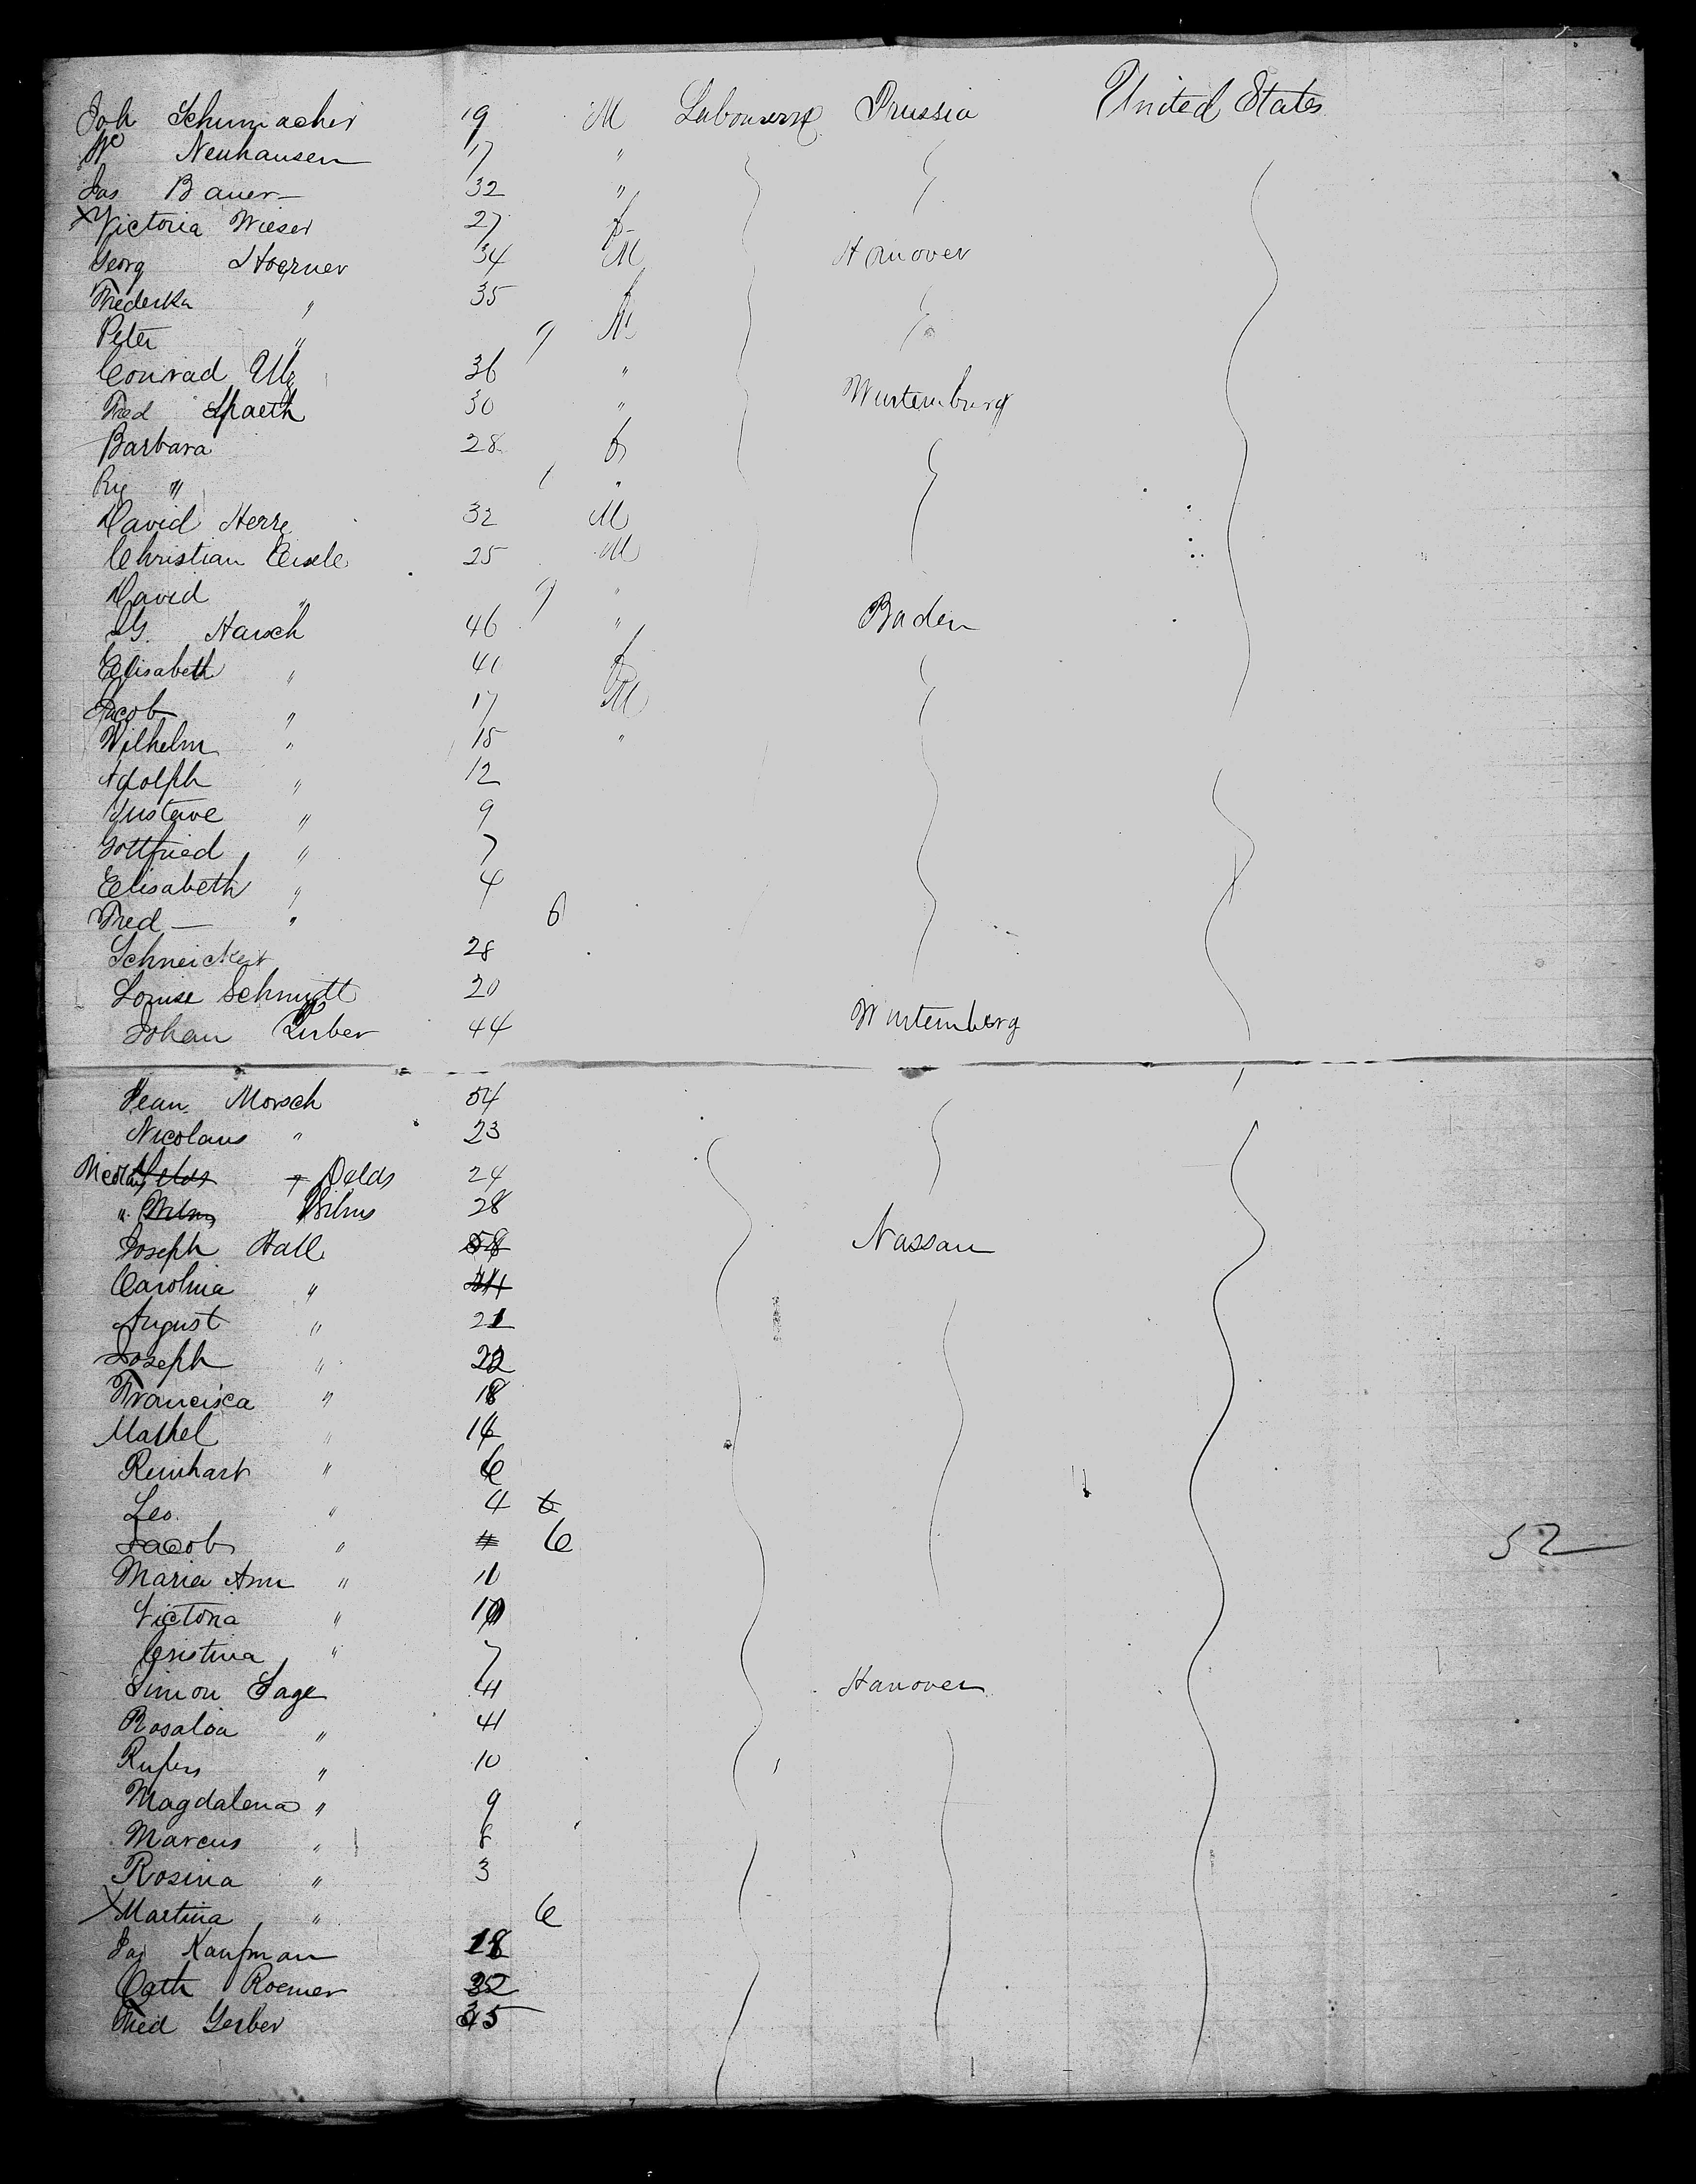 Joh Schumacher 19 M Labourers Prussia United States
Neuhausen 17 "
Jas Bauer 32 "
X Victoria Wieser 27 f
Georg Hoerner 34 M Hanover
Frederka " 35 f
Peter " 9 M
Conrad Ulz 36 "
Fred Spaeth 30 " Wurtemburg
Barbara 28 f
" 1 "
David Herre 32 M
Christian Eisele 25 M
David " 9 "
Harsch 46 " Baden
Elisabeth " 41 f
Jacob " 17 M
Wilhelm " 15 "
Adolph " 12
Gustave " 9
Gottfried " 7
Elisabeth " 4
Fred " 6
Schneickert 28
Louise Schmidt 20
Johan 44 Wurtemberg
Jean Morsch 54
Nicolaus " 23
Nicolaus Delds 24
" Wilms 28
Joseph Hall 58 Nassau
Carolina "
August " 21
Joseph " 22
Francisca " 18
"
Reinhart " 6
Leo " 4 6
Jacob " 6
Maria Ann " 11
Victoria "
Cristina " 7
Simon Sage 41 Hanover
Rosalia " 41
Rufus " 10
Magdalena " 9
Marcus "
Rosina " 3
X Martina " 6
Kaufman 18
Cath Roemer 32
Fred Gerber 35
52